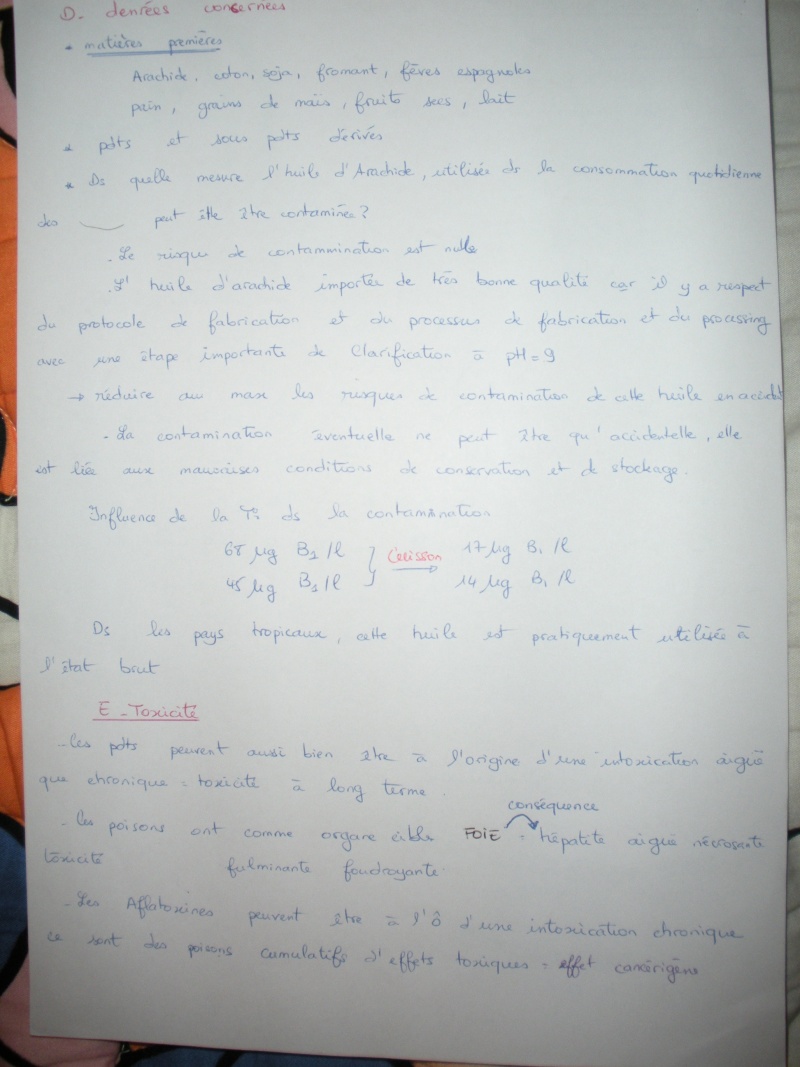 D- denrées concernées
* matières premières
Arachide, coton, soja, fromant, fèves espagnoles
pain, grains de maïs, fruits secs, lait
* pdts et sous pdts dérivés
* Ds quelle mesure l'huile d'Arachide, utilisée ds la consommation quotidienne
des peut être contaminée?
. Le risque de contammination est nulle
. L'huile d'arachide importée de très bonne qualité car il y a respect
du protocole de fabrication et du processus de fabrication et du processing
avec une étape importante de Clarification à pH = 9
→ réduire au max les risques de contamination de cette huile en
- La contamination éventuelle ne peut être qu'accidentelle, elle
est liée aux mauvaises conditions de conservation et de stockage.
Influence de la T° ds la contamination
68 µg B1/l } Cuisson → 17 µg B1/l
45 µg B1/l 14 µg B1/l
Ds les pays tropicaux, cette huile est pratiquement utilisée à
l'état brut
E - Toxicité
- Ces pdts peuvent aussi bien être à l'origine d'une intoxication aiguë
que chronique = toxicité à long terme.
conséquence
- les poisons ont comme organe cible FOIE = hépatite aiguë nécrosante
toxicité fulminante foudroyante.
- Les Aflatoxines peuvent être à l'ô d'une intoxication chronique
ce sont des poisons cumulatifs d'effets toxiques = effet cancérigène